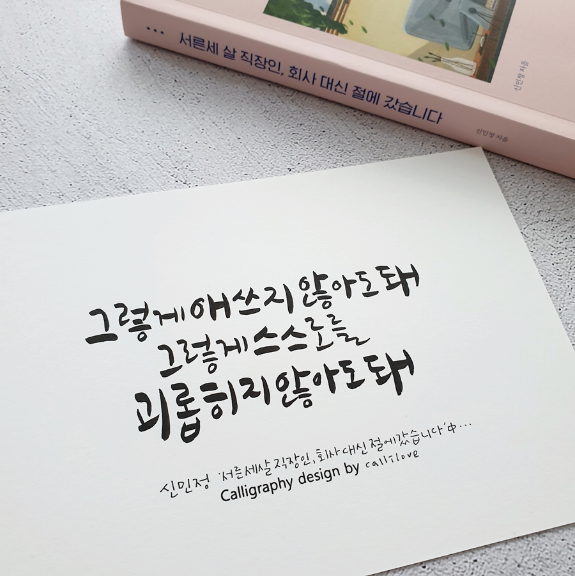 서른세 살 직장인, 회사 대신 절에 갔습니다
신민정 지음
신민정 지음
그렇게 애쓰지 않아도 돼
그렇게 스스로를
괴롭히지 않아도 돼
신민정 '서른세살 직장인, 회사 대신 절에 갔습니다' 中...
Calligraphy design by callilove